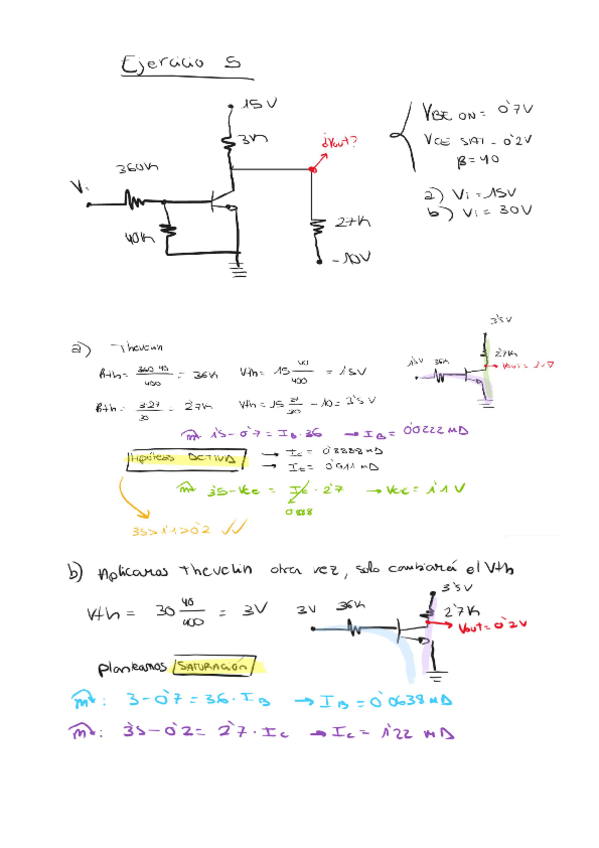 Ejercicio 5
15V
3K
¿Vout?
360K
Vi
40K
27K
-10V
VBE ON = 0'7V
VCE SAT = 0'2V
β = 40
a) Vi = 15V
b) Vi = 30V
a) Thevelin
Rth = 360·40/400 = 36K Vth = 15 40/400 = 1'5V
Rth = 3·27/30 = 2'7K Vth = 15 27/30 - 10 = 3'5V
3'5V
2'7K
1'5V 36K
1'5 - 0'7 = IB·36 → IB = 0'0222 mA
Hipótesis ACTIVA → IC = 0'8888 mA
→ IE = 0'911 mA
3'5 - VCE = IC · 2'7 → VCE = 1'1V
0'888
3'5>1'1>0'2 ✓✓
b) Aplicamos Thevelin otra vez, solo cambiará el Vth
3'5V
Vth = 30 40/400 = 3V
3V 36K
2'7K
Vout = 0'2V
planteamos SATURACIÓN
: 3 - 0'7 = 36 · IB → IB = 0'0638 mA
: 3'5 - 0'2 = 2'7 · IC → IC = 1'22 mA